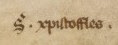 S. xpistoffles.